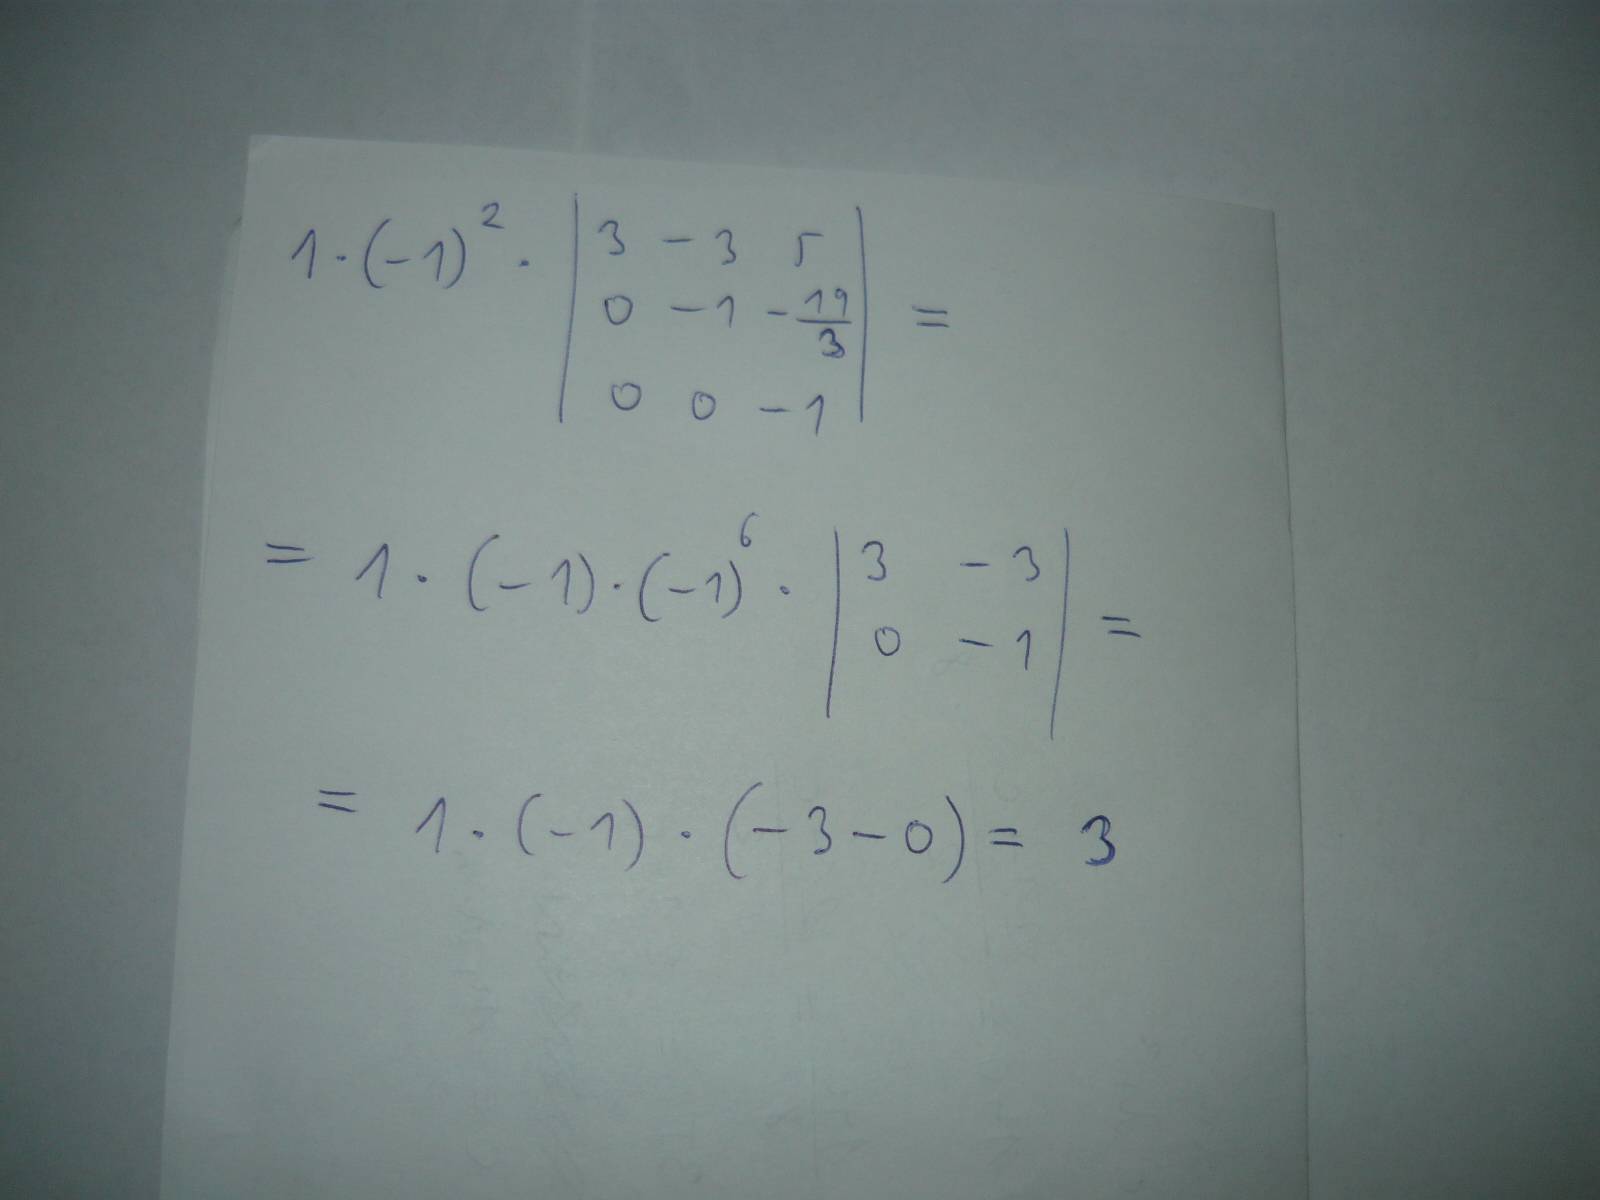 1·(-1)² · | 3 -3 5 |
| 0 -1 -19/3 | =
| 0 0 -1 |
= 1·(-1)·(-1)⁶ · | 3 -3 | =
| 0 -1 |
= 1·(-1)·(-3-0) = 3